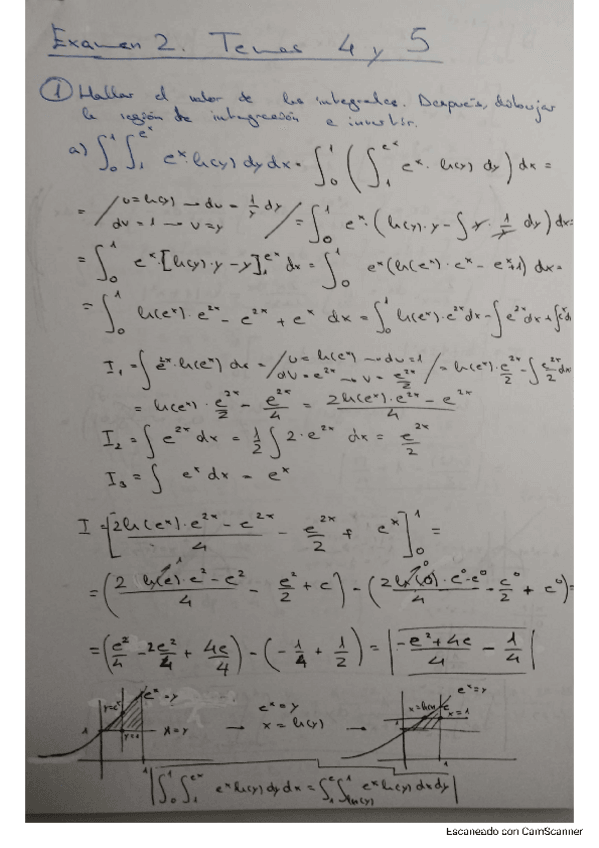 Examen 2. Temas 4 y 5
① Hallar el valor de las integrales. Después, dibujar
la región de integración e invertir.
a) ∫₀¹ ∫₁^{e^x} e^x · ln(y) dy dx = ∫₀¹ ( ∫₁^{e^x} e^x · ln(y) dy ) dx =
= / u = ln(y) → du = 1/y dy
dv = 1 → v = y / = ∫₀¹ e^x · ( ln(y) · y − ∫ y · 1/y dy ) dx =
= ∫₀¹ e^x · [ln(y) · y − y]₁^{e^x} dx = ∫₀¹ e^x (ln(e^x) · e^x − e^x + 1) dx =
= ∫₀¹ ln(e^x) · e^{2x} − e^{2x} + e^x dx = ∫₀¹ ln(e^x) · e^{2x} dx − ∫ e^{2x} dx + ∫ e^x dx
I₁ = ∫ e^{2x} · ln(e^x) dx = / u = ln(e^x) → du = 1
dv = e^{2x} → v = e^{2x}/2 / = ln(e^x) · e^{2x}/2 − ∫ e^{2x}/2 dx
= ln(e^x) · e^{2x}/2 − e^{2x}/4 = (2 ln(e^x) · e^{2x} − e^{2x})/4
I₂ = ∫ e^{2x} dx = 1/2 ∫ 2 · e^{2x} dx = e^{2x}/2
I₃ = ∫ e^x dx = e^x
I = [ (2 ln(e^x) · e^{2x} − e^{2x})/4 − e^{2x}/2 + e^x ]₀¹ =
= ( (2 ln(e) · e² − e²)/4 − e²/2 + e ) − ( (2 ln(0) · e⁰ − e⁰)/4 − e⁰/2 + e⁰ ) =
= ( e²/4 − 2e²/4 + 4e/4 ) − ( −1/4 + 1/2 ) = | (−e² + 4e)/4 − 1/4 |
e^x = y
y = e^x
1
y = 1
1
→
e^x = y
x = ln(y)
→
e^x = y
x = ln(y)
e
x = 1
1
1
| ∫₀¹ ∫₁^{e^x} e^x ln(y) dy dx = ∫₁^e ∫_{ln(y)}^1 e^x ln(y) dx dy |
Escaneado con CamScanner